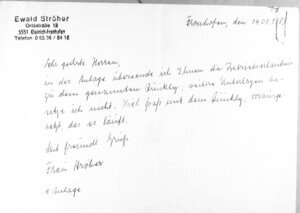 Ewald Ströher
Ortsstraße 12
5551 Elzerath-Fronhofen
Telefon 0 65 36 / 84 18
Fronhofen, den 14.01.
Sehr geehrte Herren,
in der Anlage übersende ich Ihnen die
zu dem genannten Dinkly; weitere Unterlagen be-
sitze ich nicht. Viel Spaß mit dem Dinkly, vorausge-
setzt, das es läuft.
Mit freundl. Gruß
Ströher
1 Anlage